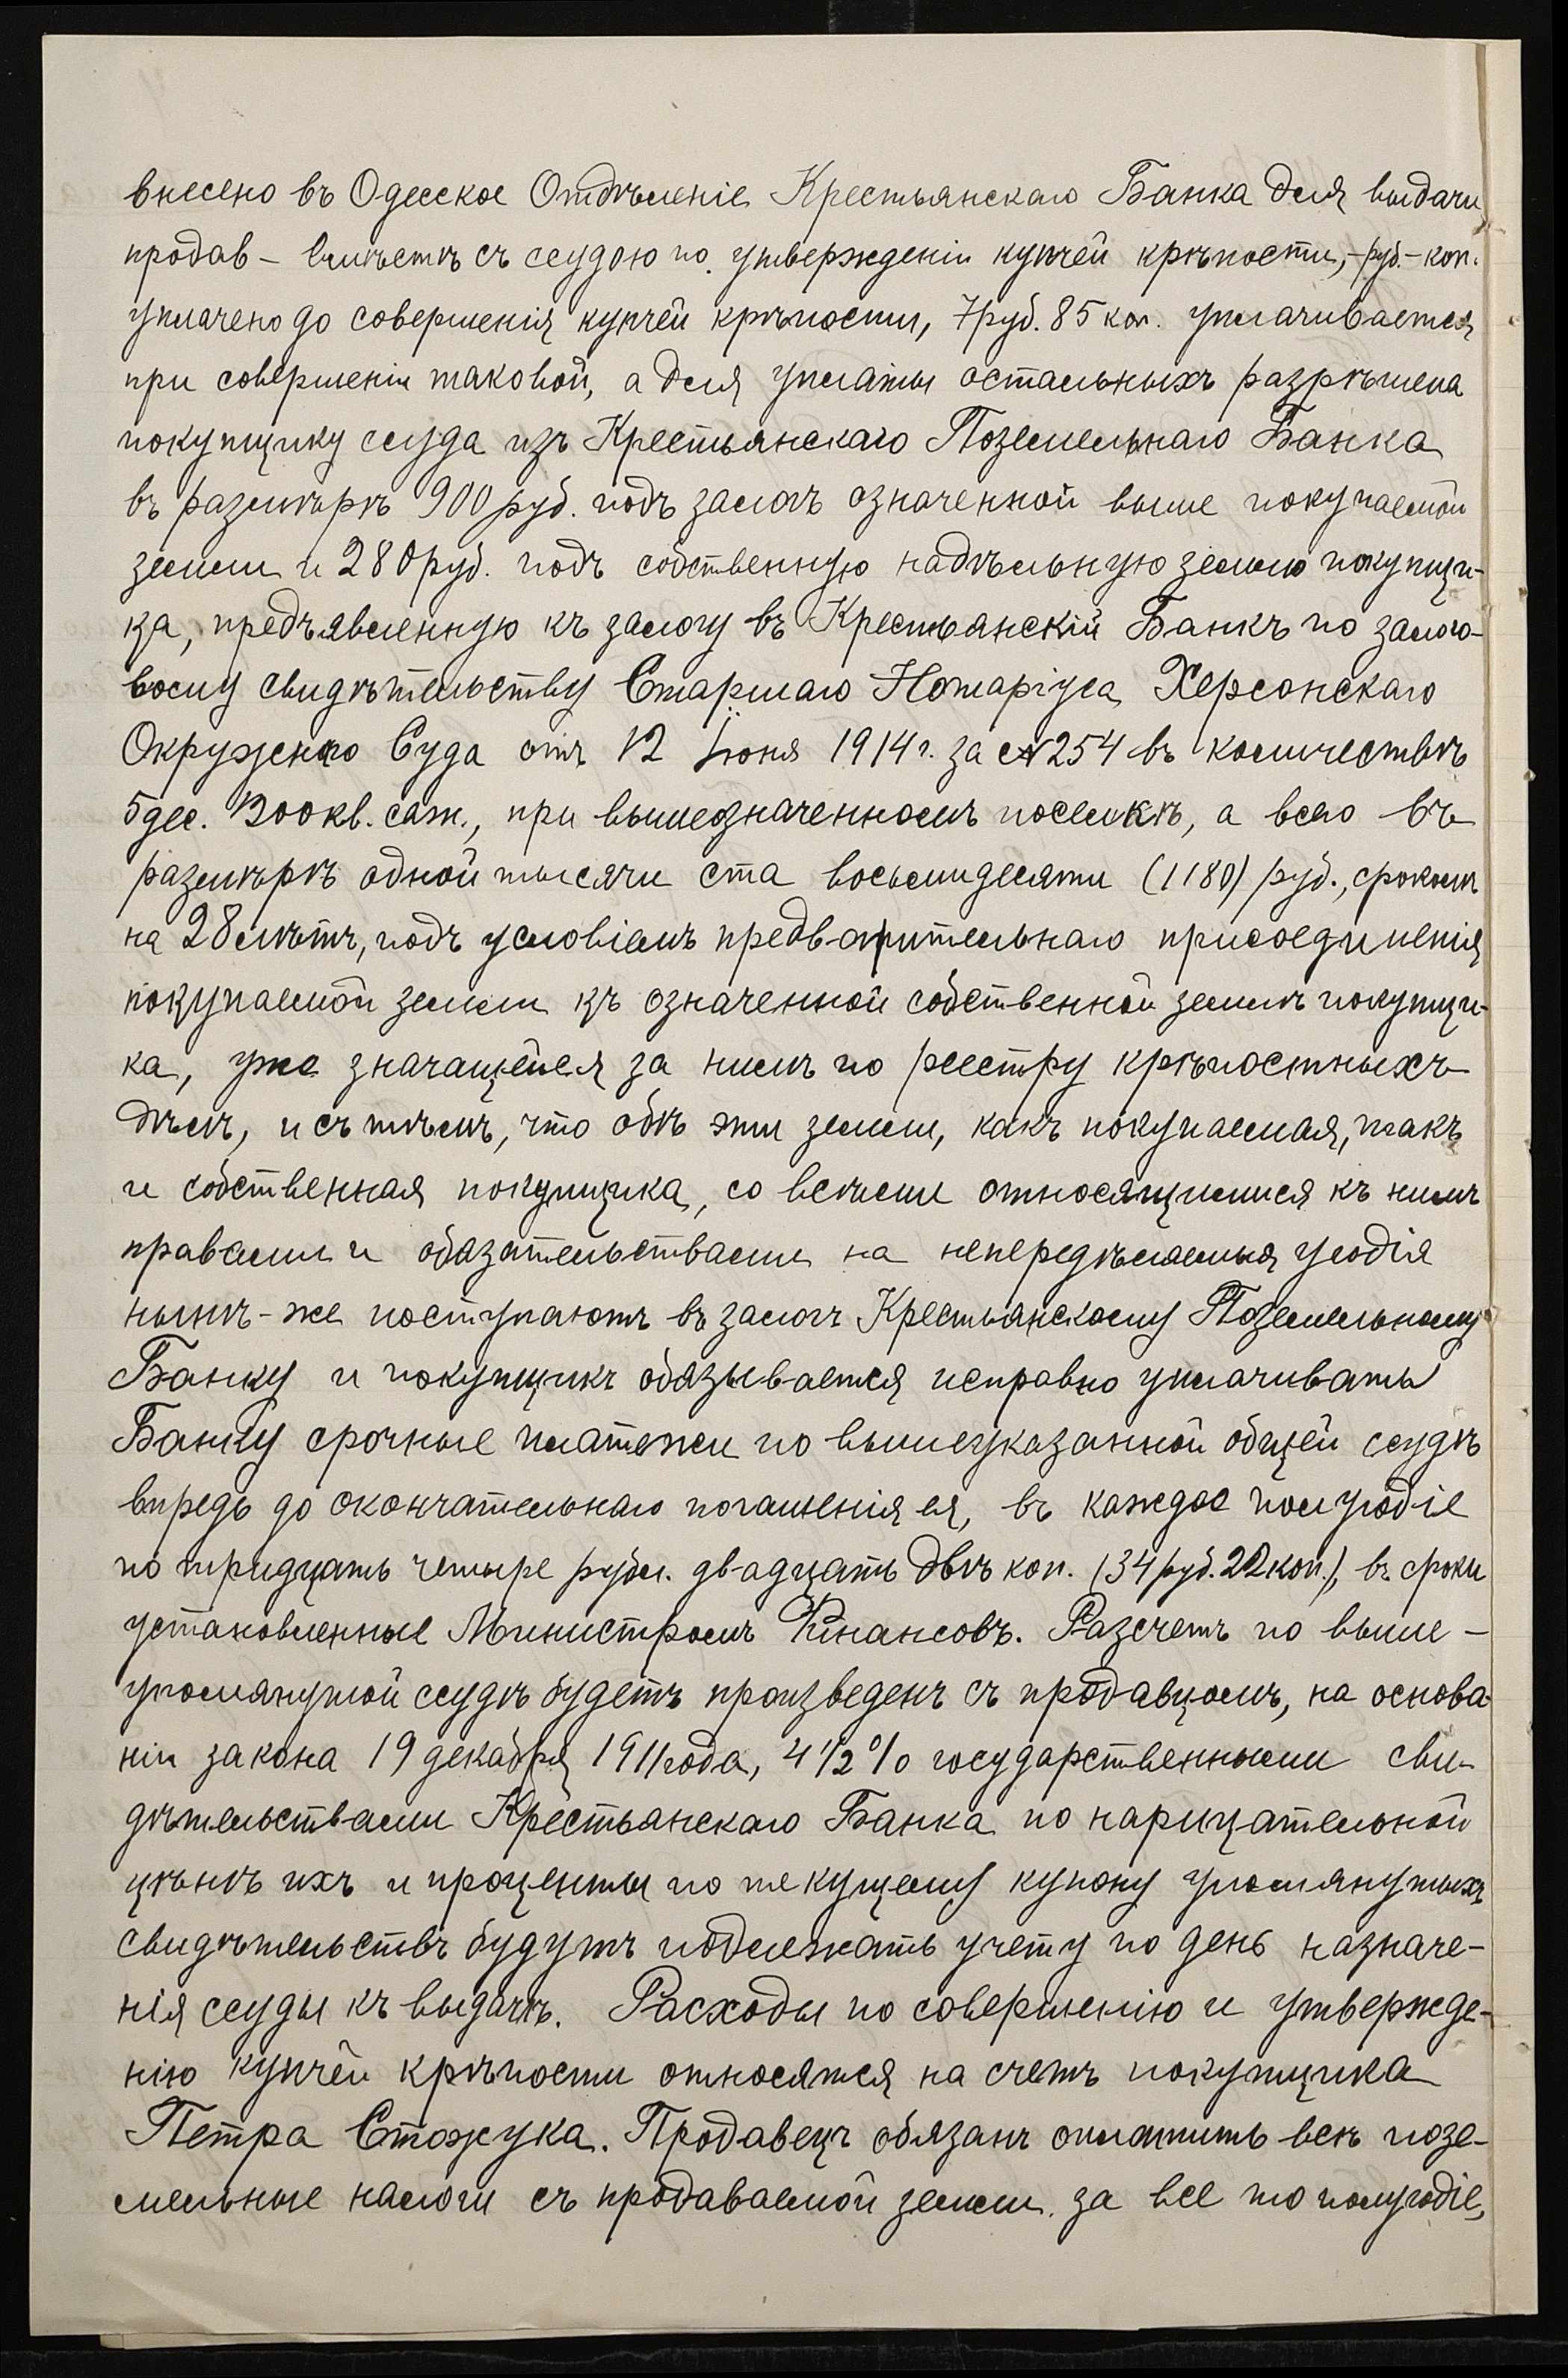 внесено въ Одесское Отдѣленіе Крестьянскаго Банка для выдачи
продав – вмѣстѣ съ ссудою по утвержденіи купчей крѣпости, – руб. – коп.
уплачено до совершенія купчей крѣпости, 7 руб. 85 коп. уплачивается
при совершеніи таковой, а для уплаты остальныхъ разрѣшена
покупщику ссуда изъ Крестьянскаго Поземельнаго Банка
въ размѣрѣ 900 руб. подъ залогъ означенной выше покупаемой
земли и 280 руб. подъ собственную надѣльную землю покупщи-
ка, предъявленную къ залогу въ Крестьянскій Банкъ по залого-
вому свидѣтельству Старшаго Нотаріуса Херсонскаго
Окружнаго Суда отъ 12 Іюня 1914 г. за № 254 въ количествѣ
5 дес. 1300 кв. саж., при вышеозначенномъ поселкѣ, а всего въ
размѣрѣ одной тысячи ста восьмидесяти (1180) руб., срокомъ
на 28 лѣтъ, подъ условіемъ предварительнаго присоединенія
покупаемой земли къ означенной собственной землѣ покупщи-
ка, уже значащейся за нимъ по реестру крѣпостныхъ
дѣлъ, и съ тѣмъ, что обѣ эти земли, какъ покупаемая, такъ
и собственная покупщика, со всѣми относящимися къ нимъ
правами и обязательствами на непередѣляемыя угодія
нынѣ-же поступаютъ въ залогъ Крестьянскому Поземельному
Банку и покупщикъ обязывается исправно уплачивать
Банку срочные платежи по вышеуказанной общей ссудѣ
впредь до окончательнаго погашенія ея, въ каждое полугодіе
по тридцать четыре рубл. двадцать двѣ коп. (34 руб. 22 коп.), въ сроки
установленные Министромъ Финансовъ. Разсчетъ по выше –
упомянутой ссудѣ будетъ произведенъ съ продавцомъ, на основа
ніи закона 19 декабря 1911 года, 4 1/2 % государственными сви-
дѣтельствами Крестьянскаго Банка по нарицательной
цѣнѣ ихъ и проценты по текущему купону упомянутыхъ
свидѣтельствъ будутъ подлежать учету по день назначе-
нія ссуды къ выдачѣ. Расходы по совершенію и утвержде-
нію купчей крѣпости относятся на счетъ покупщика
Петра Стожука. Продавецъ обязанъ оплатить всѣ позе-
мельные налоги съ продаваемой земли за все то полугодіе,